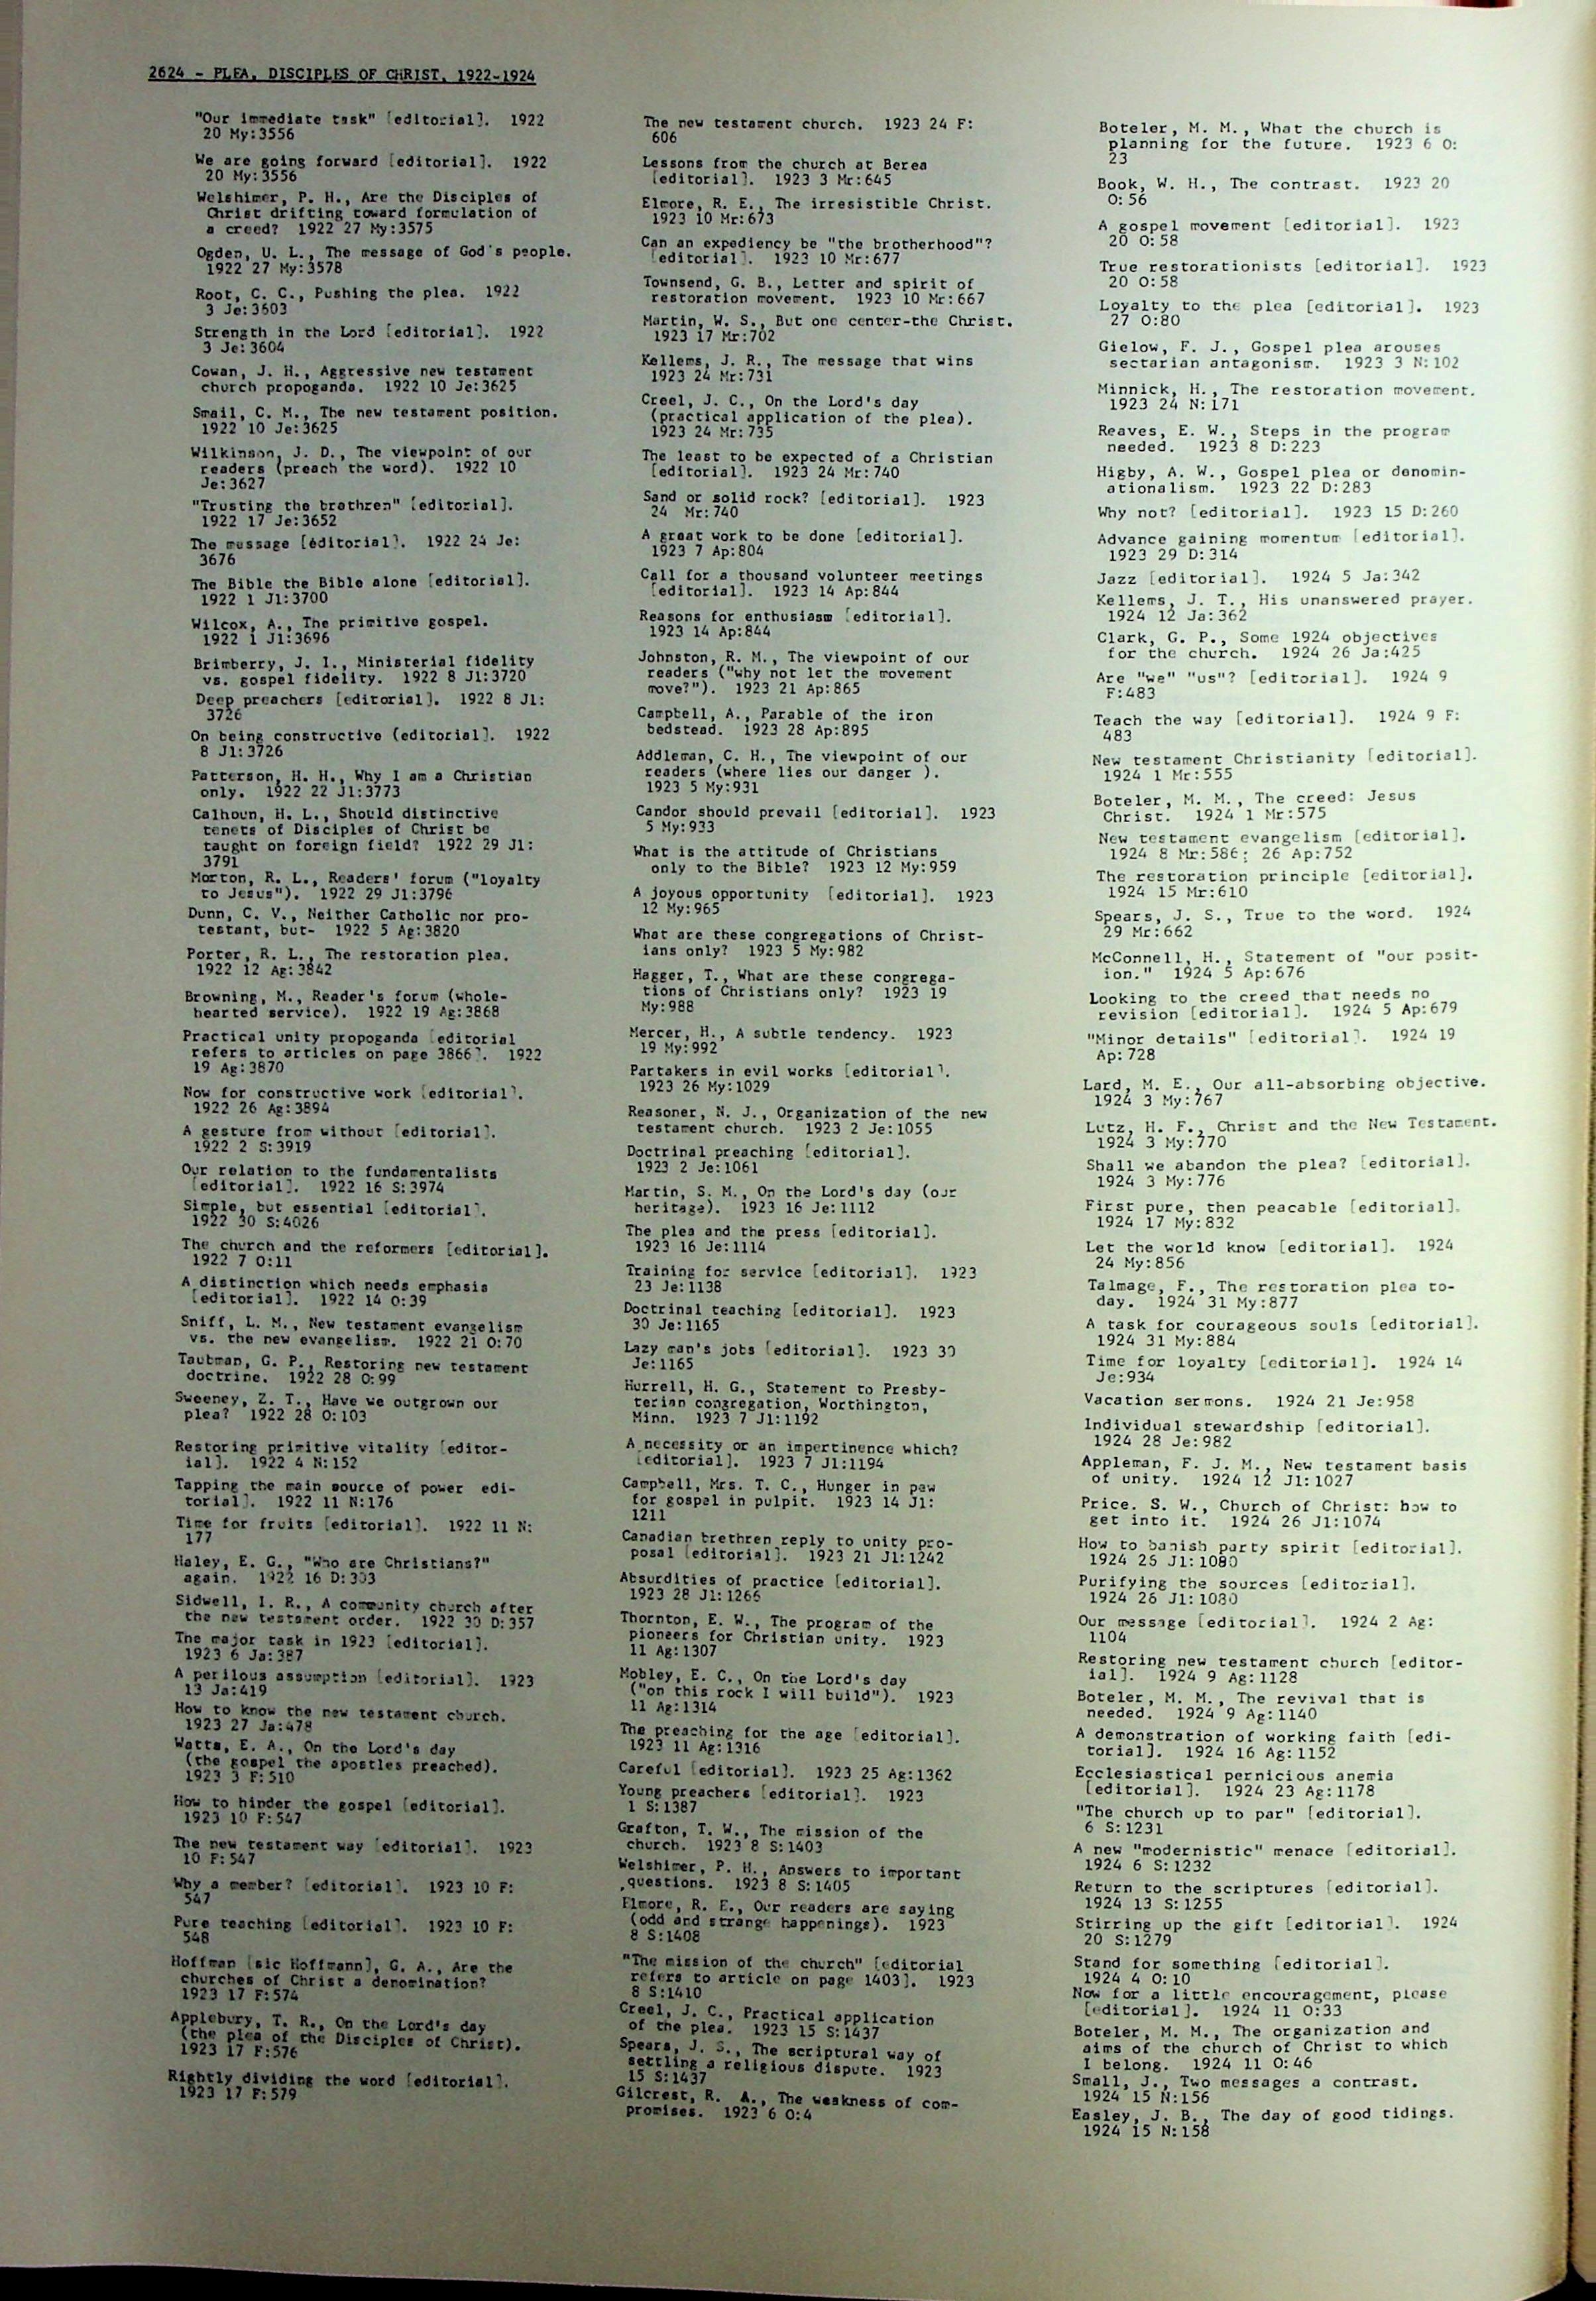 2624 - PLEA, DISCIPLES OF CHRIST, 1922-1924
"Our immediate task" [editorial]. 1922
20 My:3556
We are going forward [editorial]. 1922
20 My:3556
Welshimer, P. H., Are the Disciples of
Christ drifting toward formulation of
a creed? 1922 27 My:3575
Ogden, U. L., The message of God's people.
1922 27 My:3578
Root, C. C., Pushing the plea. 1922
3 Je:3603
Strength in the Lord [editorial]. 1922
3 Je:3604
Cowan, J. H., Aggressive new testament
church propoganda. 1922 10 Je:3625
Smail, C. M., The new testament position.
1922 10 Je:3625
Wilkinson, J. D., The viewpoint of our
readers (preach the word). 1922 10
Je:3627
"Trusting the brethren" [editorial].
1922 17 Je:3652
The message [editorial]. 1922 24 Je:
3676
The Bible the Bible alone [editorial].
1922 1 Jl:3700
Wilcox, A., The primitive gospel.
1922 1 Jl:3696
Brimberry, J. I., Ministerial fidelity
vs. gospel fidelity. 1922 8 Jl:3720
Deep preachers [editorial]. 1922 8 Jl:
3726
On being constructive (editorial]. 1922
8 Jl:3726
Patterson, H. H., Why I am a Christian
only. 1922 22 Jl:3773
Calhoun, H. L., Should distinctive
tenets of Disciples of Christ be
taught on foreign field? 1922 29 Jl:
3791
Morton, R. L., Readers' forum ("loyalty
to Jesus"). 1922 29 Jl:3796
Dunn, C. V., Neither Catholic nor pro-
testant, but- 1922 5 Ag:3820
Porter, R. L., The restoration plea.
1922 12 Ag:3842
Browning, M., Reader's forum (whole-
hearted service). 1922 19 Ag:3868
Practical unity propoganda [editorial
refers to articles on page 3866]. 1922
19 Ag:3870
Now for constructive work [editorial].
1922 26 Ag:3894
A gesture from without [editorial].
1922 2 S:3919
Our relation to the fundamentalists
[editorial]. 1922 16 S:3974
Simple, but essential [editorial].
1922 30 S:4026
The church and the reformers [editorial].
1922 7 O:11
A distinction which needs emphasis
[editorial]. 1922 14 O:39
Sniff, L. M., New testament evangelism
vs. the new evangelism. 1922 21 O:70
Taubman, G. P., Restoring new testament
doctrine. 1922 28 O:99
Sweeney, Z. T., Have we outgrown our
plea? 1922 28 O:103
Restoring primitive vitality [editor-
ial]. 1922 4 N:152
Tapping the main source of power edi-
torial]. 1922 11 N:176
Time for fruits [editorial]. 1922 11 N:
177
Haley, E. G., "Who are Christians?"
again. 1922 16 D:303
Sidwell, I. R., A community church after
the new testament order. 1922 30 D:357
The major task in 1923 [editorial].
1923 6 Ja:387
A perilous assumption [editorial]. 1923
13 Ja:419
How to know the new testament church.
1923 27 Ja:478
Watts, E. A., On the Lord's day
(the gospel the apostles preached).
1923 3 F:510
How to hinder the gospel [editorial].
1923 10 F:547
The new testament way [editorial]. 1923
10 F:547
Why a member? [editorial]. 1923 10 F:
547
Pure teaching [editorial]. 1923 10 F:
548
Hoffman [sic Hoffmann], G. A., Are the
churches of Christ a denomination?
1923 17 F:574
Applebury, T. R., On the Lord's day
(the plea of the Disciples of Christ).
1923 17 F:576
Rightly dividing the word [editorial].
1923 17 F:579
The new testament church. 1923 24 F:
606
Lessons from the church at Berea
[editorial]. 1923 3 Mr:645
Elmore, R. E., The irresistible Christ.
1923 10 Mr:673
Can an expediency be "the brotherhood"?
[editorial]. 1923 10 Mr:677
Townsend, G. B., Letter and spirit of
restoration movement. 1923 10 Mr:667
Martin, W. S., But one center-the Christ.
1923 17 Mr:702
Kellems, J. R., The message that wins
1923 24 Mr:731
Creel, J. C., On the Lord's day
(practical application of the plea).
1923 24 Mr:735
The least to be expected of a Christian
[editorial]. 1923 24 Mr:740
Sand or solid rock? [editorial]. 1923
24 Mr:740
A great work to be done [editorial].
1923 7 Ap:804
Call for a thousand volunteer meetings
[editorial]. 1923 14 Ap:844
Reasons for enthusiasm [editorial].
1923 14 Ap:844
Johnston, R. M., The viewpoint of our
readers ("why not let the movement
move?"). 1923 21 Ap:865
Campbell, A., Parable of the iron
bedstead. 1923 28 Ap:895
Addleman, C. H., The viewpoint of our
readers (where lies our danger ).
1923 5 My:931
Candor should prevail [editorial]. 1923
5 My:933
What is the attitude of Christians
only to the Bible? 1923 12 My:959
A joyous opportunity [editorial]. 1923
12 My:965
What are these congregations of Christ-
ians only? 1923 5 My:982
Hagger, T., What are these congrega-
tions of Christians only? 1923 19
My:988
Mercer, H., A subtle tendency. 1923
19 My:992
Partakers in evil works [editorial].
1923 26 My:1029
Reasoner, N. J., Organization of the new
testament church. 1923 2 Je:1055
Doctrinal preaching [editorial].
1923 2 Je:1061
Martin, S. M., On the Lord's day (our
heritage). 1923 16 Je:1112
The plea and the press [editorial].
1923 16 Je:1114
Training for service [editorial]. 1923
23 Je:1138
Doctrinal teaching [editorial]. 1923
30 Je:1165
Lazy man's jobs [editorial]. 1923 30
Je:1165
Hurrell, H. G., Statement to Presby-
terian congregation, Worthington,
Minn. 1923 7 Jl:1192
A necessity or an impertinence which?
[editorial]. 1923 7 Jl:1194
Campbell, Mrs. T. C., Hunger in pew
for gospel in pulpit. 1923 14 Jl:
1211
Canadian brethren reply to unity pro-
posal [editorial]. 1923 21 Jl:1242
Absurdities of practice [editorial].
1923 28 Jl:1266
Thornton, E. W., The program of the
pioneers for Christian unity. 1923
11 Ag:1307
Mobley, E. C., On the Lord's day
("on this rock I will build"). 1923
11 Ag:1314
The preaching for the age [editorial].
1923 11 Ag:1316
Careful [editorial]. 1923 25 Ag:1362
Young preachers [editorial]. 1923
1 S:1387
Grafton, T. W., The mission of the
church. 1923 8 S:1403
Welshimer, P. H., Answers to important
questions. 1923 8 S:1405
Elmore, R. E., Our readers are saying
(odd and strange happenings). 1923
8 S:1408
"The mission of the church" [editorial
refers to article on page 1403]. 1923
8 S:1410
Creel, J. C., Practical application
of the plea. 1923 15 S:1437
Spears, J. S., The scriptural way of
settling a religious dispute. 1923
15 S:1437
Gilcrest, R. A., The weakness of com-
promises. 1923 6 O:4
Boteler, M. M., What the church is
planning for the future. 1923 6 O:
23
Book, W. H., The contrast. 1923 20
O:56
A gospel movement [editorial]. 1923
20 O:58
True restorationists [editorial]. 1923
20 O:58
Loyalty to the plea [editorial]. 1923
27 O:80
Gielow, F. J., Gospel plea arouses
sectarian antagonism. 1923 3 N:102
Minnick, H., The restoration movement.
1923 24 N:171
Reaves, E. W., Steps in the program
needed. 1923 8 D:223
Higby, A. W., Gospel plea or denomin-
ationalism. 1923 22 D:283
Why not? [editorial]. 1923 15 D:260
Advance gaining momentum [editorial].
1923 29 D:314
Jazz [editorial]. 1924 5 Ja:342
Kellems, J. T., His unanswered prayer.
1924 12 Ja:362
Clark, G. P., Some 1924 objectives
for the church. 1924 26 Ja:425
Are "we" "us"? [editorial]. 1924 9
F:483
Teach the way [editorial]. 1924 9 F:
483
New testament Christianity [editorial].
1924 1 Mr:555
Boteler, M. M., The creed: Jesus
Christ. 1924 1 Mr:575
New testament evangelism [editorial].
1924 8 Mr:586; 26 Ap:752
The restoration principle [editorial].
1924 15 Mr:610
Spears, J. S., True to the word. 1924
29 Mr:662
McConnell, H., Statement of "our posit-
ion." 1924 5 Ap:676
Looking to the creed that needs no
revision [editorial]. 1924 5 Ap:679
"Minor details" [editorial]. 1924 19
Ap:728
Lard, M. E., Our all-absorbing objective.
1924 3 My:767
Lutz, H. F., Christ and the New Testament.
1924 3 My:770
Shall we abandon the plea? [editorial].
1924 3 My:776
First pure, then peacable [editorial].
1924 17 My:832
Let the world know [editorial]. 1924
24 My:856
Talmage, F., The restoration plea to-
day. 1924 31 My:877
A task for courageous souls [editorial].
1924 31 My:884
Time for loyalty [editorial]. 1924 14
Je:934
Vacation sermons. 1924 21 Je:958
Individual stewardship [editorial].
1924 28 Je:982
Appleman, F. J. M., New testament basis
of unity. 1924 12 Jl:1027
Price. S. W., Church of Christ: how to
get into it. 1924 26 Jl:1074
How to banish party spirit [editorial].
1924 26 Jl:1080
Purifying the sources [editorial].
1924 26 Jl:1080
Our message [editorial]. 1924 2 Ag:
1104
Restoring new testament church [editor-
ial]. 1924 9 Ag:1128
Boteler, M. M., The revival that is
needed. 1924 9 Ag:1140
A demonstration of working faith [edi-
torial]. 1924 16 Ag:1152
Ecclesiastical pernicious anemia
[editorial]. 1924 23 Ag:1178
"The church up to par" [editorial].
6 S:1231
A new "modernistic" menace [editorial].
1924 6 S:1232
Return to the scriptures [editorial].
1924 13 S:1255
Stirring up the gift [editorial]. 1924
20 S:1279
Stand for something [editorial].
1924 4 O:10
Now for a little encouragement, please
[editorial]. 1924 11 O:33
Boteler, M. M., The organization and
aims of the church of Christ to which
I belong. 1924 11 O:46
Small, J., Two messages a contrast.
1924 15 N:156
Easley, J. B., The day of good tidings.
1924 15 N:158